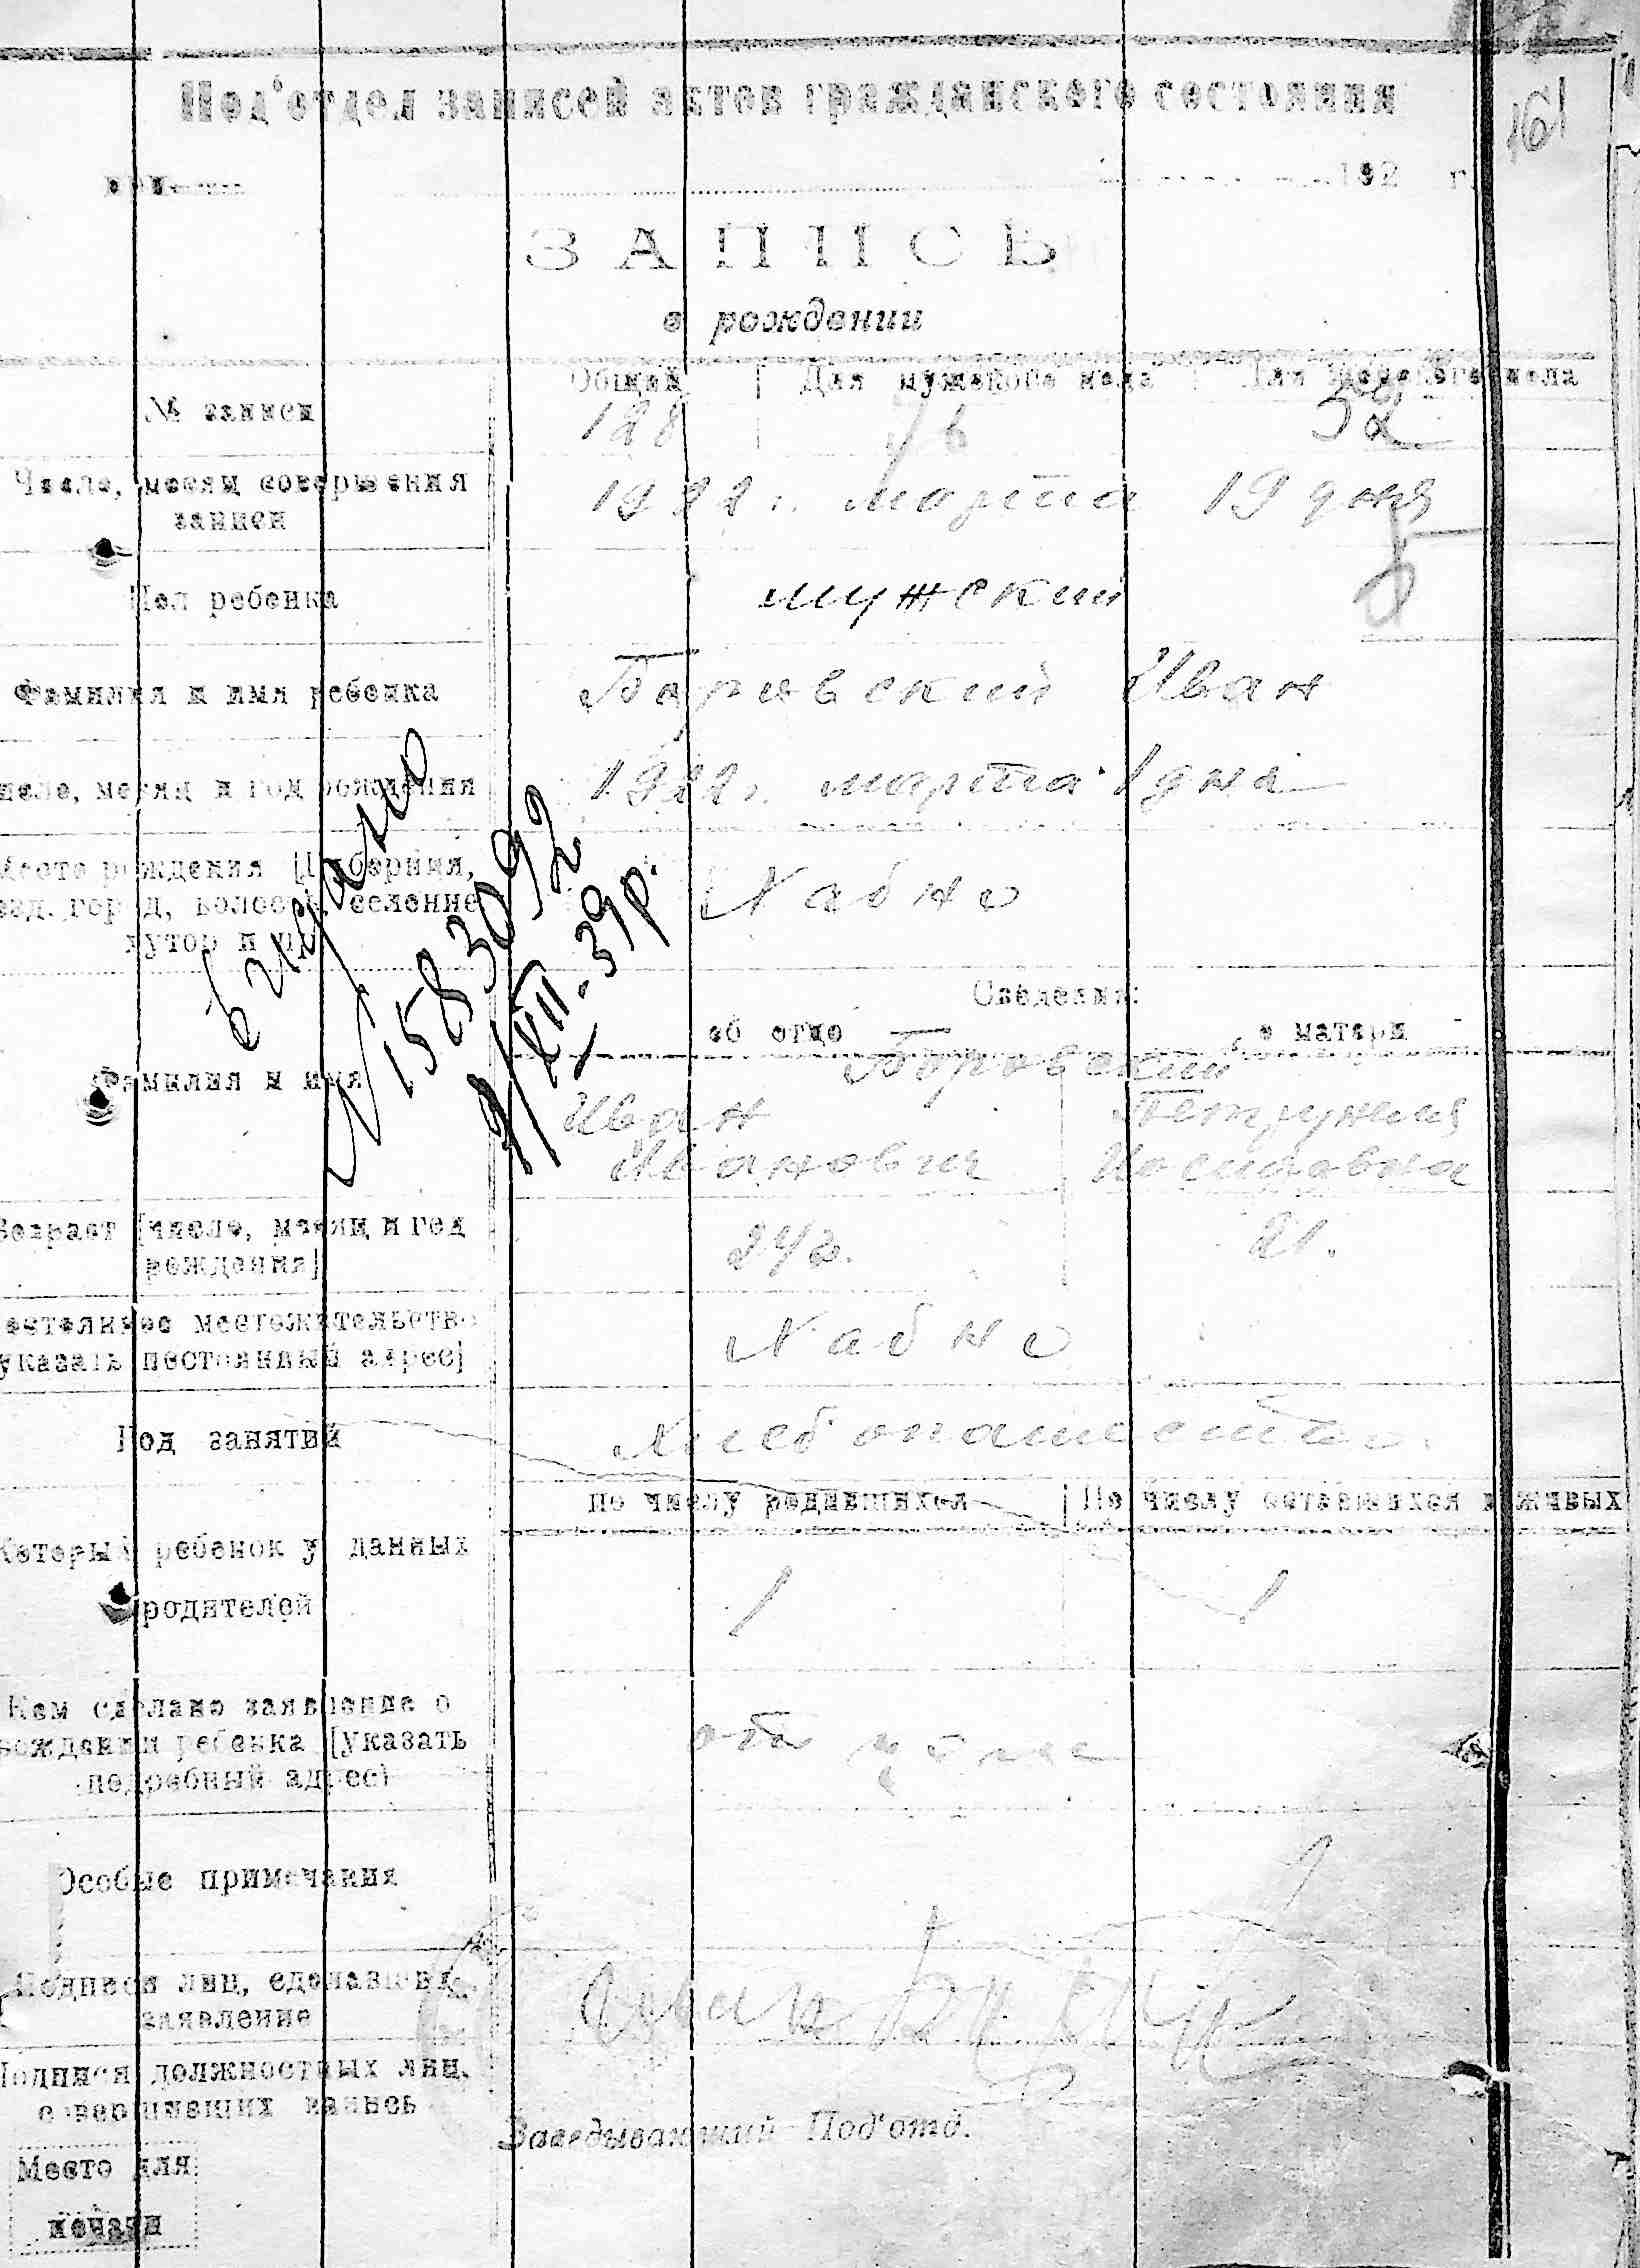 161
Под'отдел записей актов гражданского состояния
при
192 г.
ЗАПИСЬ
о рождении
Общий | Для мужского пола | Для женского пола
№ записи 128
Число, месяц совершения
записи
1922 г. марта 19 дня
Пол ребенка мужский
Фамилия и имя ребенка Боровский Иван
Число, месяц и год рождения 1922 г. марта 1 дня
Место рождения [Губерния,
уезд, город, волость, селение
хутор и пр.
Хабно
видано
N 1583092
9/XII-39р.
Сведения:
об отце о матери
Фамилия и имя
Боровский
Иван Петрунеля
Иванович Иосифовна
Возраст [число, месяц и год
рождения]
24 г. 21.
Постоянное местожительство
указать постоянный адрес]
Хабно
Род занятий Хлебопашество.
По числу родившихся | По числу оставшихся в живых
Который ребенок у данных
родителей
1 1
Кем сделано заявление о
рождении ребенка [указать
подробный адрес]
Особые примечания
Подписи лиц, сделавших
заявление
Подписи должностных лиц,
совершивших запись
Заведывающий Под'отд.
Место для
печати